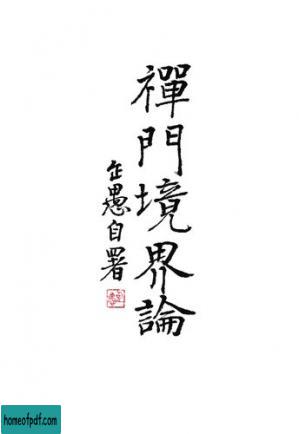 禪門境界論
企愚自署
homeofpdf.com